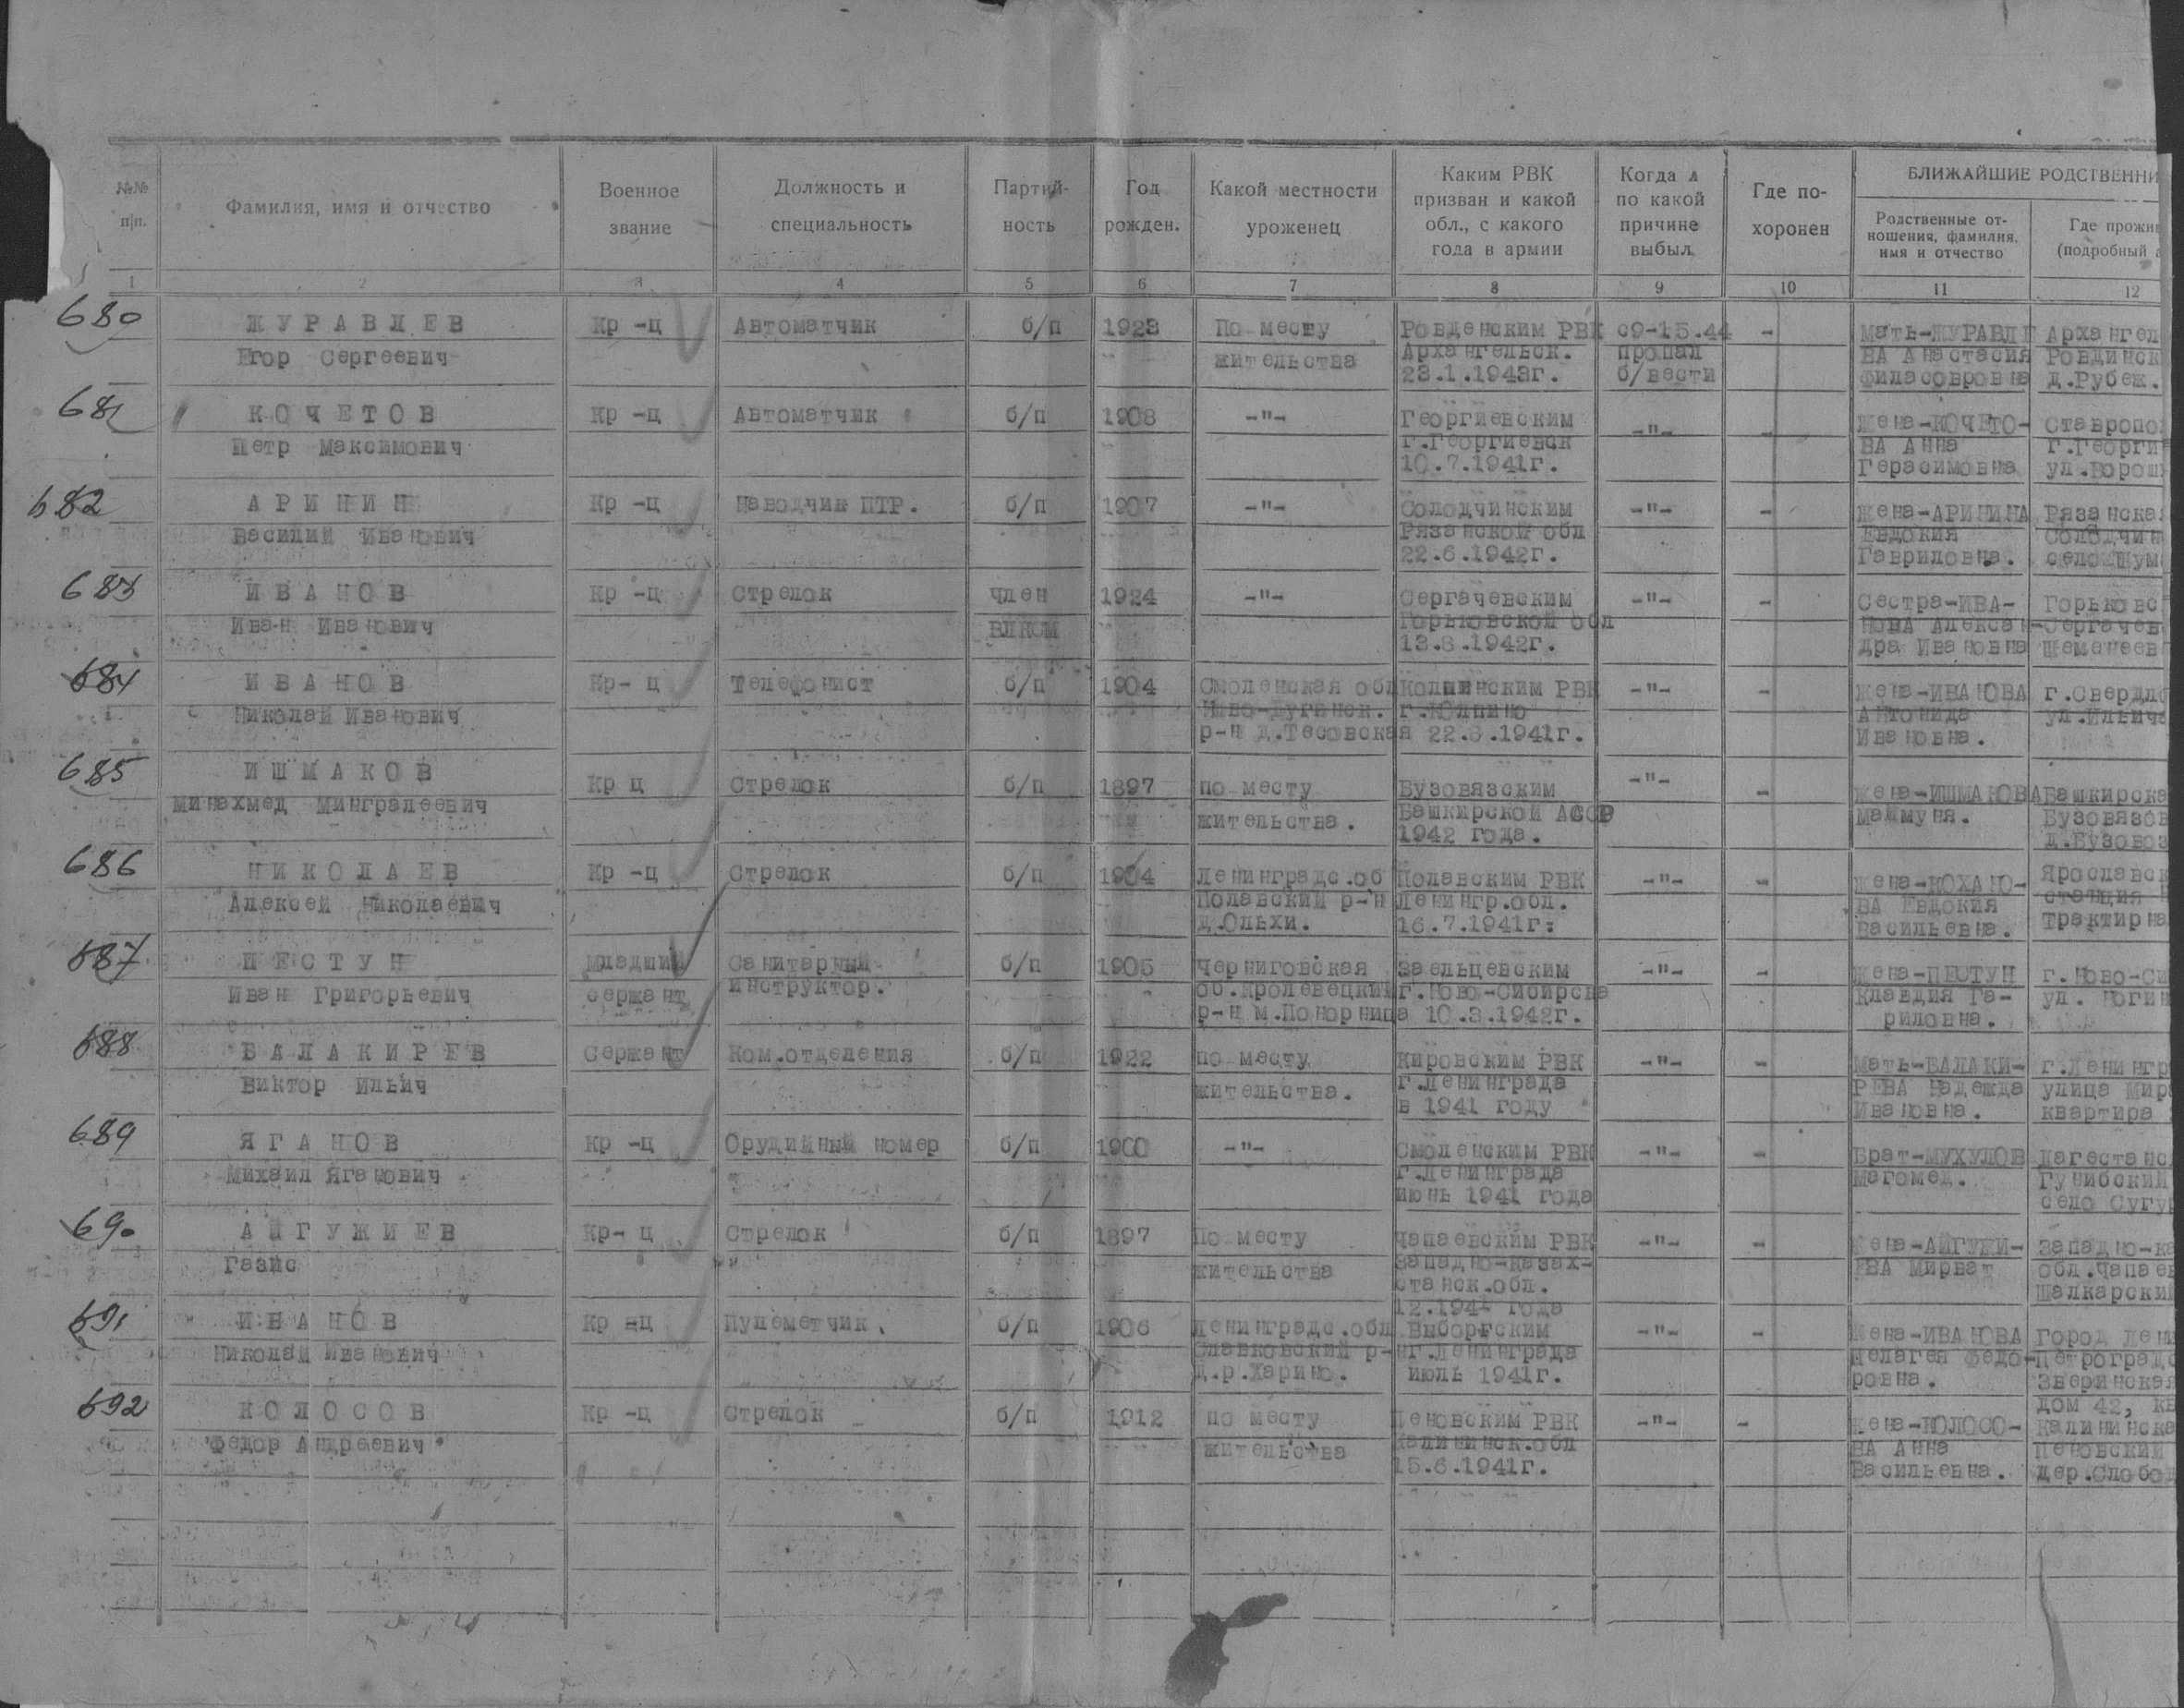 №№ п/п.
Фамилия, имя и отчество
Военное звание
Должность и специальность
Партий-ность
Год рожден.
Какой местности уроженец
Каким РВК призван и какой обл., с какого года в армии
Когда и по какой причине выбыл
Где по-хоронен
БЛИЖАЙШИЕ РОДСТВЕННИ
Родственные от-ношения, фамилия, имя и отчество
Где прожи
(подробный а
1 2 3 4 5 6 7 8 9 10 11 12
680 ЖУРАВЛЕВ Кр -ц Автоматчик б/п 1923 По месту Ровденским РВК с9-15.44 - Мать-ЖУРАВЛЕ Архангел
Егор Сергеевич жительства Архангельск. пропал ВА Анастасия Ровдинск
23.1.1943г. б/вести д.Рубеж.
681 КОЧЕТОВ Кр -ц Автоматчик б/п 1908 -"- Георгиевским -"- - Жена-КОЧЕТО- Ставропол
Петр Максимович г.Георгиевск ВА Анна г.Георги
10.7.1941г. Герасимовна ул.Ворош
682 АРИНИН Кр -ц Наводчик ПТР. б/п 1907 -"- Солодчинским -"- - Жена-АРИНИНА Рязанска
Василий Иванович Рязанской обл Евдокия Солодчин
22.6.1942г. Гавриловна. село Шум
683 ИВАНОВ Кр -ц Стрелок член 1924 -"- Сергачевским -"- - Сестра-ИВА- Горьковс
Иван Иванович ВЛКСМ Горьковской обл НОВА Алексан-Сергачев
13.8.1942г. дра Ивановна Шеменеев
684 ИВАНОВ Кр- ц Телефонист б/п 1904 Смоленская обл Колпинским РВК -"- - Жена-ИВАНОВА г.Свердло
Николай Иванович Ново-Дугинск. г.Колпино Антонида ул.Ильича
р-н д.Тесовская 22.6.1941г. Ивановна.
685 ИШМАКОВ Кр ц Стрелок б/п 1897 по месту Бузовязским -"- - Жена-ИШМАКОВА Башкирска
Минахмед Мингралеевич жительства. Башкирской АССР Маймуня. Бузовязов
1942 года. д.Бузовоз
686 НИКОЛАЕВ Кр -ц Стрелок б/п 1904 Ленинградс.об Полавским РВК -"- - Жена-КОХАНО- Ярославск
Алексей Николаевич Полавский р-н Ленингр.обл. ВА Евдокия станция
д.Ольхи. 16.7.1941г: Васильевна. трактирна
687 ПЕСТУН Младший Санитарный б/п 1905 Черниговская Заельцевским -"- - Жена-ПЕСТУН г.Ново-Си
Иван Григорьевич сержант инструктор. об.Кролевецкий г.Ново-Сибирска Клавдия Га- ул. Ногин
р-н м.Понорница 10.3.1942г. риловна.
688 БАЛАКИРЕВ Сержант Ком.отделения б/п 1922 по месту Кировским РВК -"- - Мать-БАЛАКИ- г.Ленингр
Виктор Ильич жительства. г.Ленинграда РЕВА Надежда улица Мир
в 1941 году Ивановна. квартира
689 ЯГАНОВ Кр -ц Орудийный номер б/п 1900 -"- Смоленским РВК -"- - Брат-МУХУЛОВ Дагестанс
Михаил Яганович г.Ленинграда Магомед. Гунибский
июнь 1941 года село Сугу
690 АЙГУЖИЕВ Кр- ц Стрелок б/п 1897 По месту Чапаевским РВК -"- - Жена-АЙГУЖИ- Западно-ка
Газис жительства Западно-Казах- ЕВА Мирват обл.Чапаев
станск.обл. Шалкарский
12.1941 года
691 ИВАНОВ Кр -ц Пулеметчик. б/п 1906 Ленинградс.обл Выборгским -"- - Жена-ИВАНОВА город Лени
Николай Иванович Славковский р-н г.Ленинграда Пелагея Федо-Петроградс
д.р.Харино. июль 1941г. ровна. Зверинская
дом 42, кв
692 КОЛОСОВ Кр -ц Стрелок б/п 1912 по месту Пеновским РВК -"- - Жена-КОЛОСО- Калининска
Федор Андреевич жительства Калининск.обл ВА Анна Пеновский
15.6.1941г. Васильевна. дер.Слобо